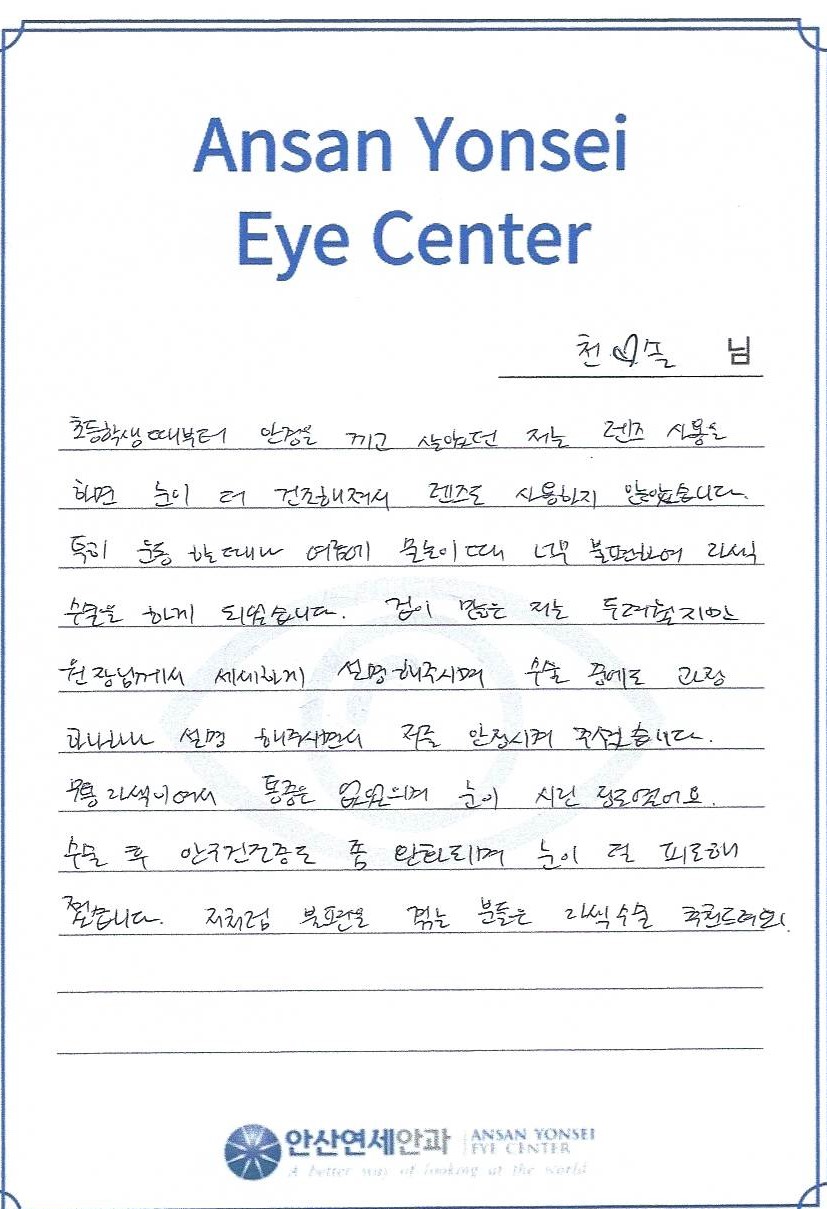 Ansan Yonsei
Eye Center
천♡슬 님
초등학생때부터 안경을 끼고 살았던 저는 렌즈 사용을
하면 눈이 더 건조해져서 렌즈도 사용하지 않았습니다.
특히 운동 할때나 여름에 물놀이때 너무 불편하여 라식
수술을 하게 되었습니다. 겁이 많은 저는 두려웠지만
원장님께서 세세하게 설명해주시며 수술 중에도 과정
하나하나 설명 해주시면서 저를 안정시켜 주셨습니다.
무통 라섹이여서 통증은 없었으며 눈이 시린 정도였어요.
수술 후 안구건조증도 좀 완화되며 눈이 덜 피로해
졌습니다. 저처럼 불편을 겪는 분들은 라식수술 추천드려요!
안산연세안과 ANSAN YONSEI
EYE CENTER
A better way of looking at the world